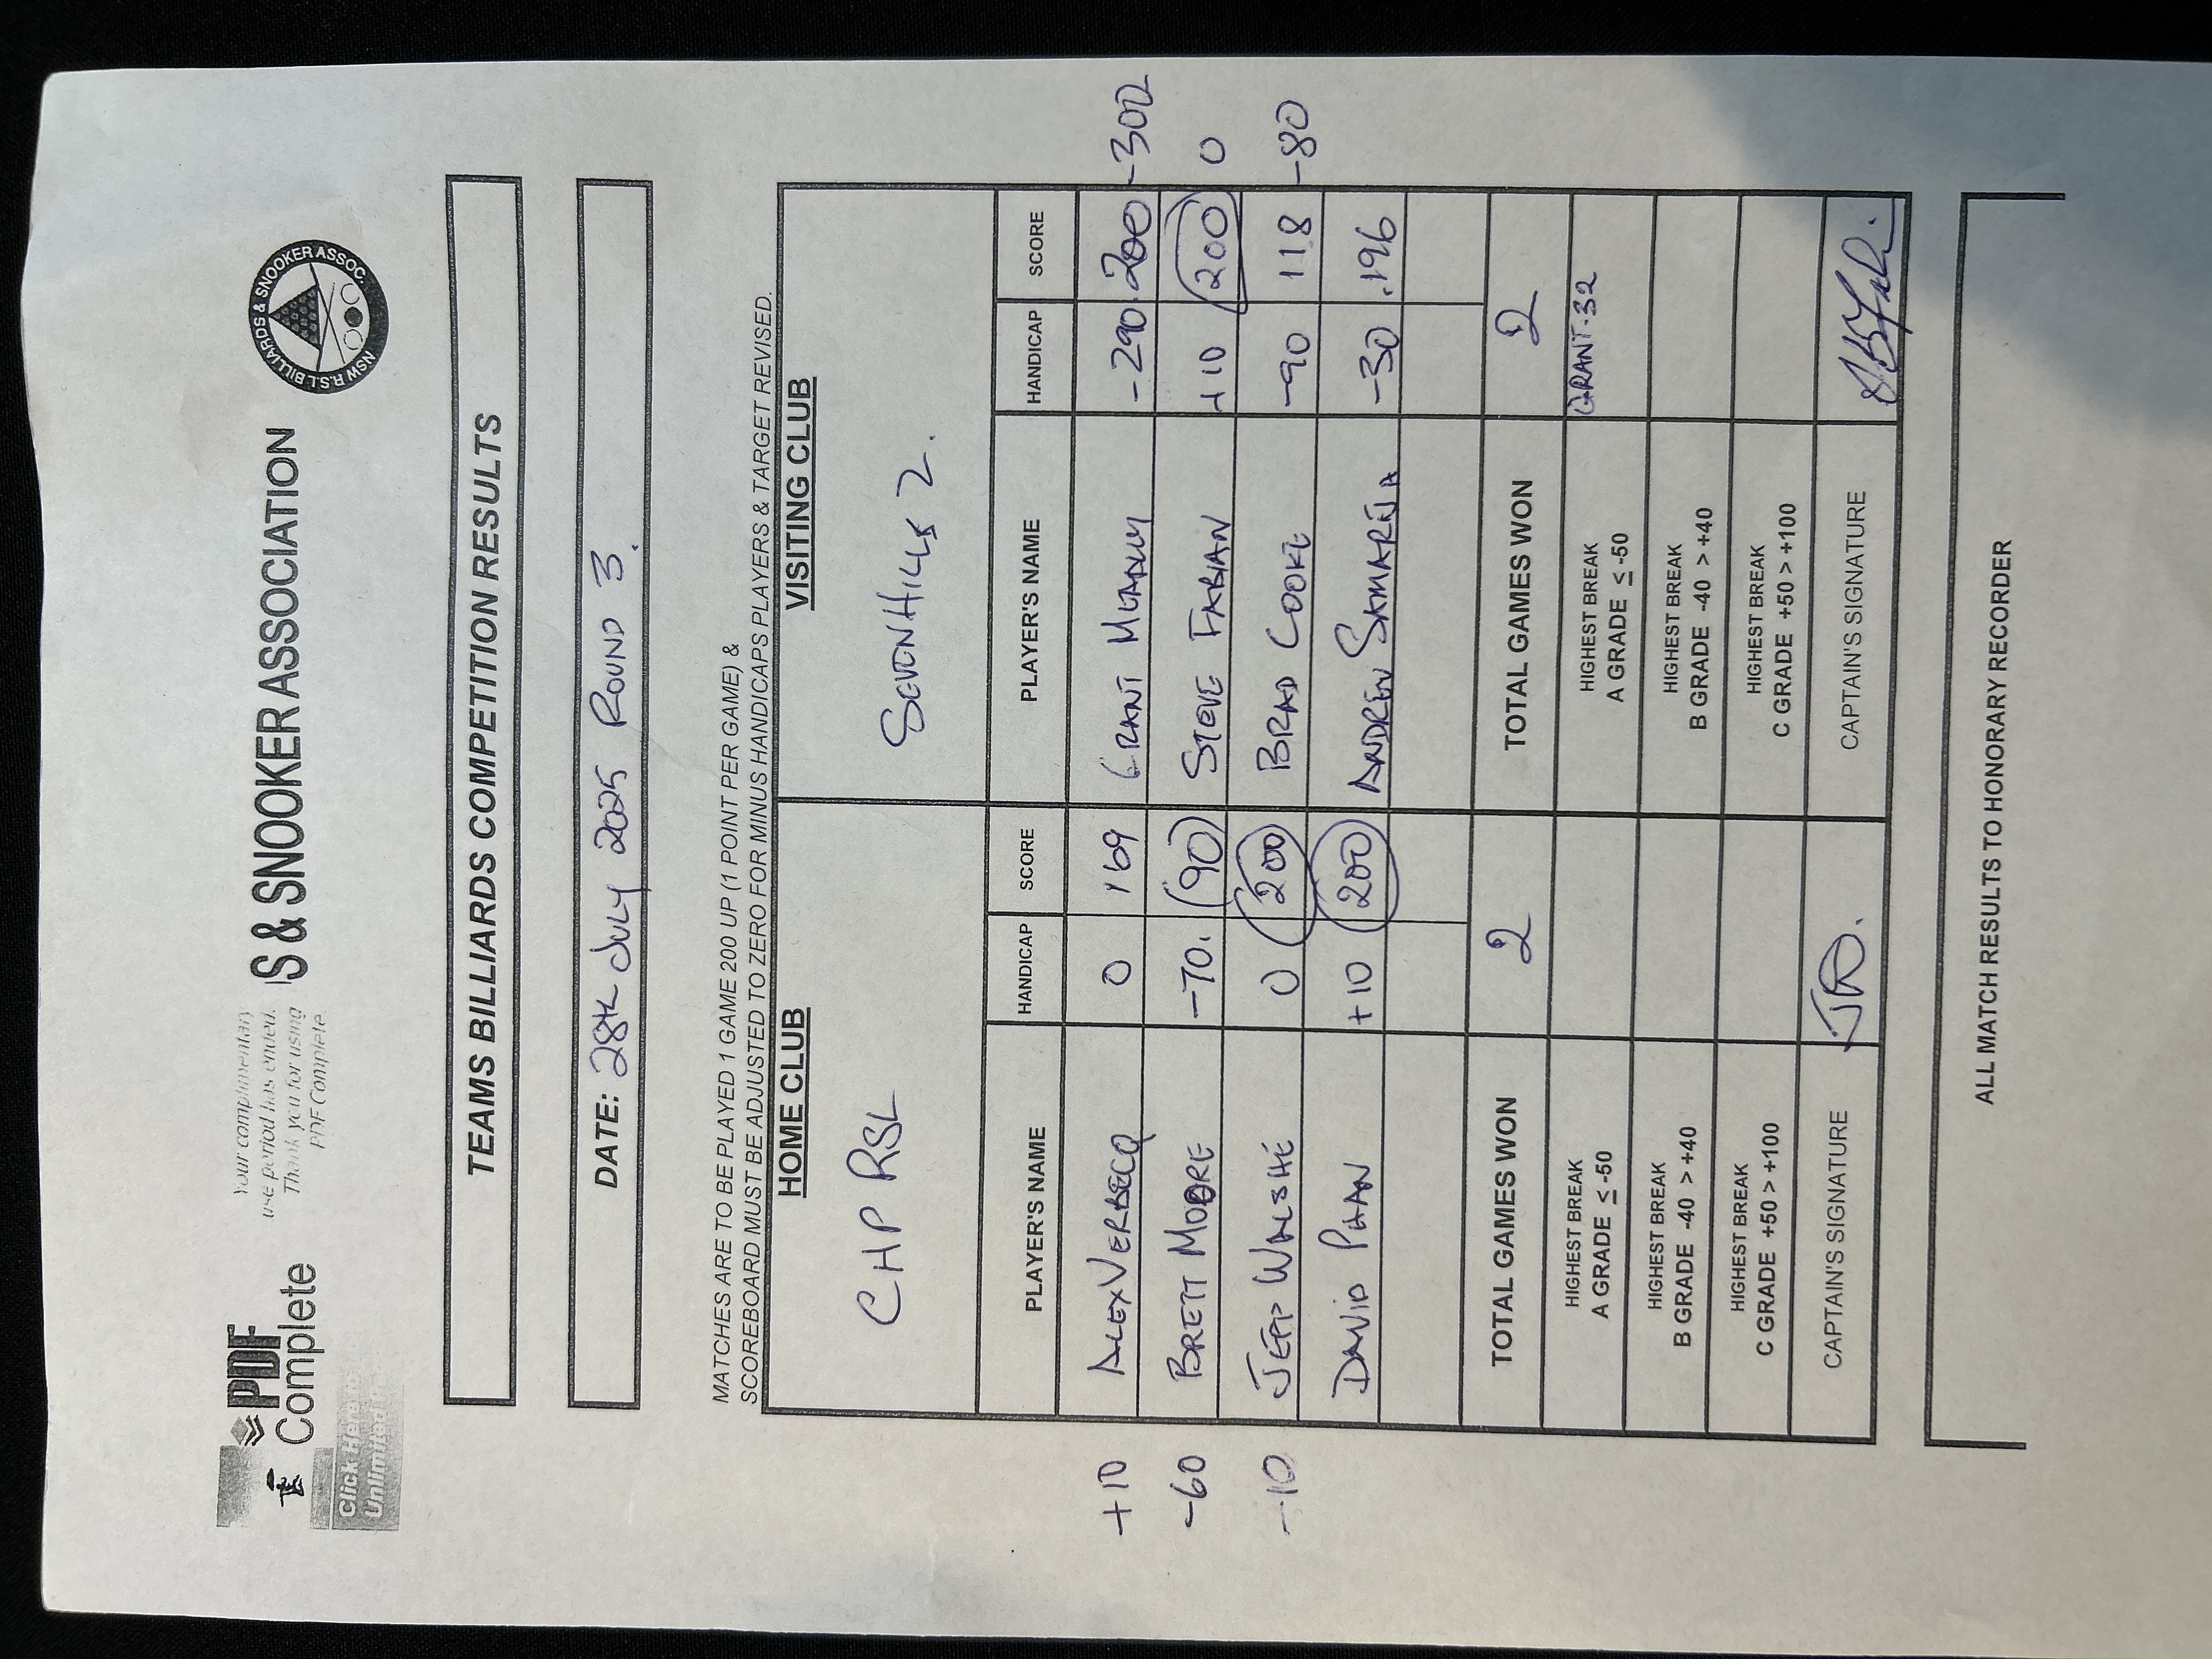 Your complimentary
use period has ended.
Thank you for using
PDF Complete.
PDF
Complete
Click Here
Unlimited
S & SNOOKER ASSOCIATION
NSW R.S.L BILLIARDS & SNOOKER ASSOC.
TEAMS BILLIARDS COMPETITION RESULTS
DATE: 28th July 2025 Round 3.
MATCHES ARE TO BE PLAYED 1 GAME 200 UP (1 POINT PER GAME) &
SCOREBOARD MUST BE ADJUSTED TO ZERO FOR MINUS HANDICAPS PLAYERS & TARGET REVISED.
HOME CLUB VISITING CLUB
CHP RSL SEVENHILLS 2.
PLAYER'S NAME HANDICAP SCORE PLAYER'S NAME HANDICAP SCORE
+10 ALEX VERBECQ 0 169 GRANT -290 200 -300
-60 BRETT MOORE -70. 90 STEVE FABIAN +10 200 0
-10 JEFF WALSHE 0 200 BRAD COOKE -90 118 -80
DAVID PHAN +10 200 ANDREW SAMARZIA -30 .196
TOTAL GAMES WON 2 TOTAL GAMES WON 2
HIGHEST BREAK HIGHEST BREAK GRANT-32
A GRADE ≤ -50 A GRADE ≤ -50
HIGHEST BREAK HIGHEST BREAK
B GRADE -40 > +40 B GRADE -40 > +40
HIGHEST BREAK HIGHEST BREAK
C GRADE +50 > +100 C GRADE +50 > +100
CAPTAIN'S SIGNATURE CAPTAIN'S SIGNATURE
ALL MATCH RESULTS TO HONORARY RECORDER